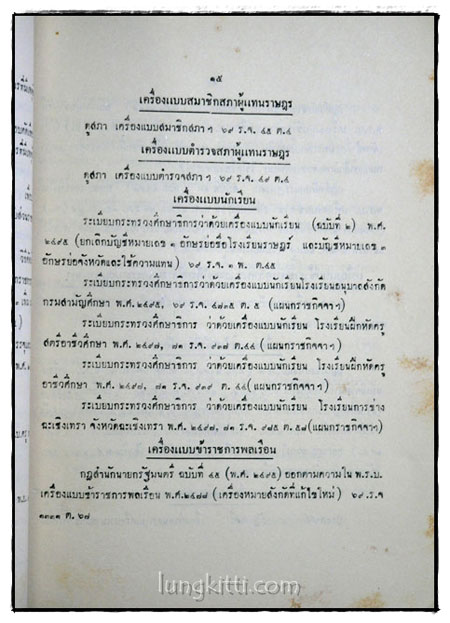 ๑๕
เครื่องแบบสมาชิกสภาผู้แทนราษฎร
ดูสภา เครื่องแบบสมาชิกสภาฯ ๖๙ ร.จ. ๔๕ ต.๔
เครื่องแบบตำรวจสภาผู้แทนราษฎร
ดูสภา เครื่องแบบตำรวจสภาฯ ๖๙ ร.จ. ๔๙ ต.๔
เครื่องแบบนักเรียน
ระเบียบกระทรวงศึกษาธิการว่าด้วยเครื่องแบบนักเรียน (ฉบับที่ ๒) พ.ศ.
๒๔๙๕ (ยกเลิกบัญชีหมายเลข ๑ อักษรย่อชื่อโรงเรียนราษฎร์ และบัญชีหมายเลข ๓
อักษรย่อจังหวัดและใช้ความแทน) ๖๙ ร.จ. ๑ พ. ต.๔๕
ระเบียบกระทรวงศึกษาธิการว่าด้วยเครื่องแบบนักเรียนโรงเรียนอนุบาลสังกัด
กรมสามัญศึกษา พ.ศ. ๒๔๙๕, ๖๙ ร.จ. ๔๘๓๕ ต. ๕ (แผนกราชกิจจาฯ)
ระเบียบกระทรวงศึกษาธิการ ว่าด้วยเครื่องแบบนักเรียน โรงเรียนฝึกหัดครู
สตรีอาชีวศึกษา พ.ศ. ๒๔๙๗, ๗๑ ร.จ. ๙๓๗ ต.๔๔ (แผนกราชกิจจาฯ)
ระเบียบกระทรวงศึกษาธิการ ว่าด้วยเครื่องแบบนักเรียน โรงเรียนฝึกหัดครู
อาชีวศึกษา พ.ศ. ๒๔๙๗, ๗๑ ร.จ. ๙๓๙ ต.๔๔(แผนกราชกิจจาฯ)
ระเบียบกระทรวงศึกษาธิการ ว่าด้วยเครื่องแบบนักเรียน โรงเรียนการช่าง
ฉะเชิงเทรา จังหวัดฉะเชิงเทรา พ.ศ. ๒๔๙๗, ๗๑ ร.จ. ๙๘๕ ต.๔๗(แผนกราชกิจจาฯ)
เครื่องแบบข้าราชการพลเรือน
กฎสำนักนายกรัฐมนตรี ฉบับที่ ๔๕ (พ.ศ. ๒๔๙๕) ออกตามความใน พ.ร.บ.
เครื่องแบบข้าราชการพลเรือน พ.ศ.๒๔๗๘ (เครื่องหมายสังกัดที่แก้ไขใหม่) ๖๙ ร.จ
๑๓๓๑ ต. ๖๗
lungkitti.com